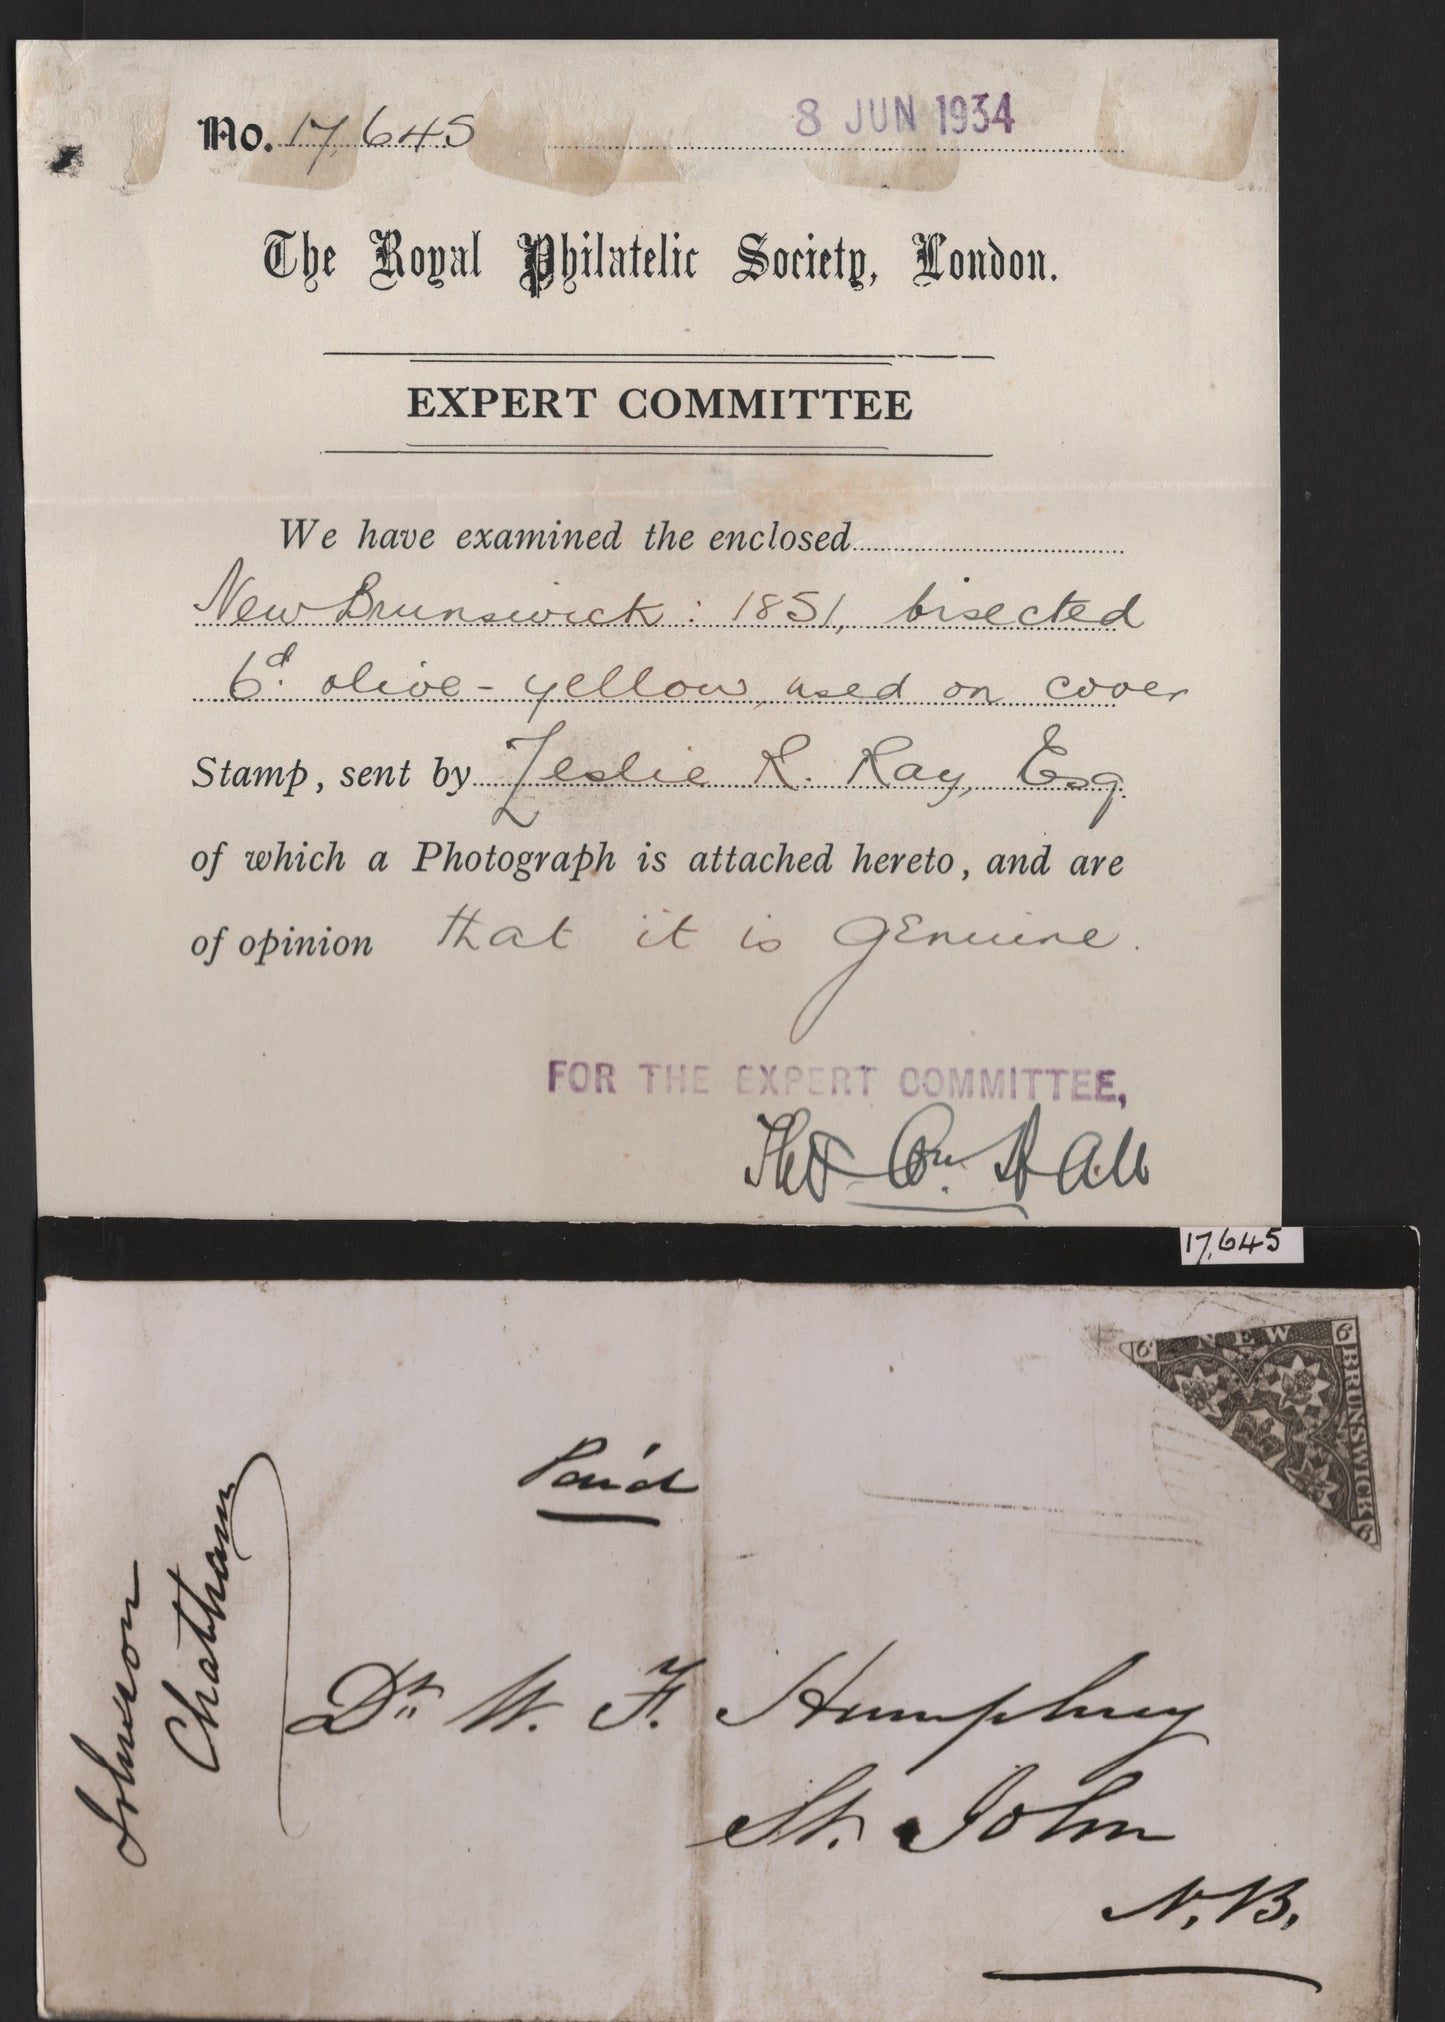 No. 17,645 8 JUN 1934
The Royal Philatelic Society, London.
EXPERT COMMITTEE
We have examined the enclosed
New Brunswick: 1851, bisected
6d. olive-yellow, used on cover
Stamp, sent by Leslie R. Ray, Esq.
of which a Photograph is attached hereto, and are
of opinion that it is genuine.
FOR THE EXPERT COMMITTEE,
Thos Wm Hall
17,645
6 NEW 6
BRUNSWICK
6
Paid
Johnson
Chatham
Dr. W. F. Humphrey
St. John
N.B.